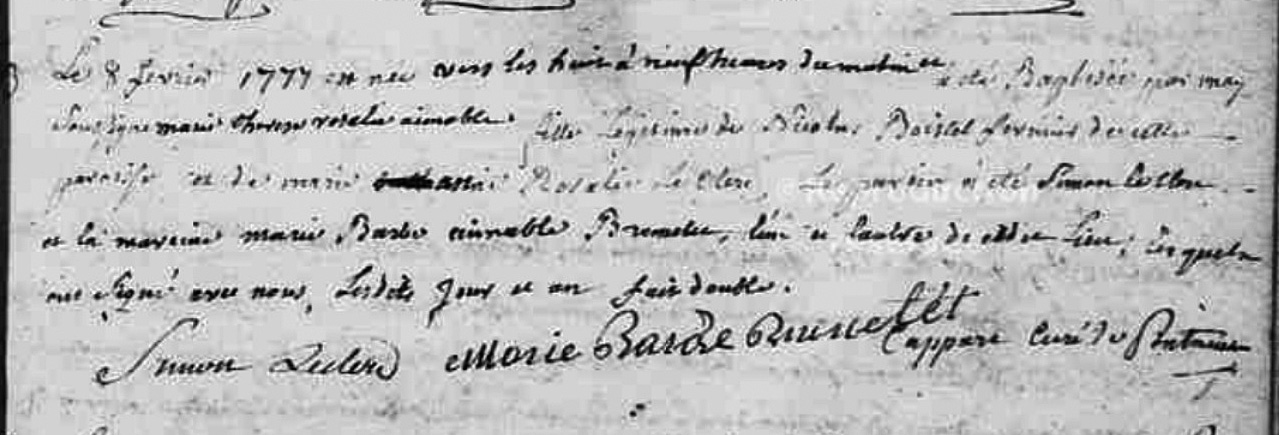 Le 8 fevrier 1777 est née vers les huit à neuf heures du matin et a été Baptisée par moy
soussigné marie therese rosalie aimable fille Légitime de Nicolas Boistel fermier de cette
paroisse et de marie Rosalie Le Clerc, Le parein a été Simon le Clerc
et la mareine marie Barbe aimable Brunelet, l'un et l'autre de ce Lieu, lesquels
ont signé avec nous, Lesdits jour et an fait double.
Simon Leclerc Marie Barbe Brunelet Cappare Curé de